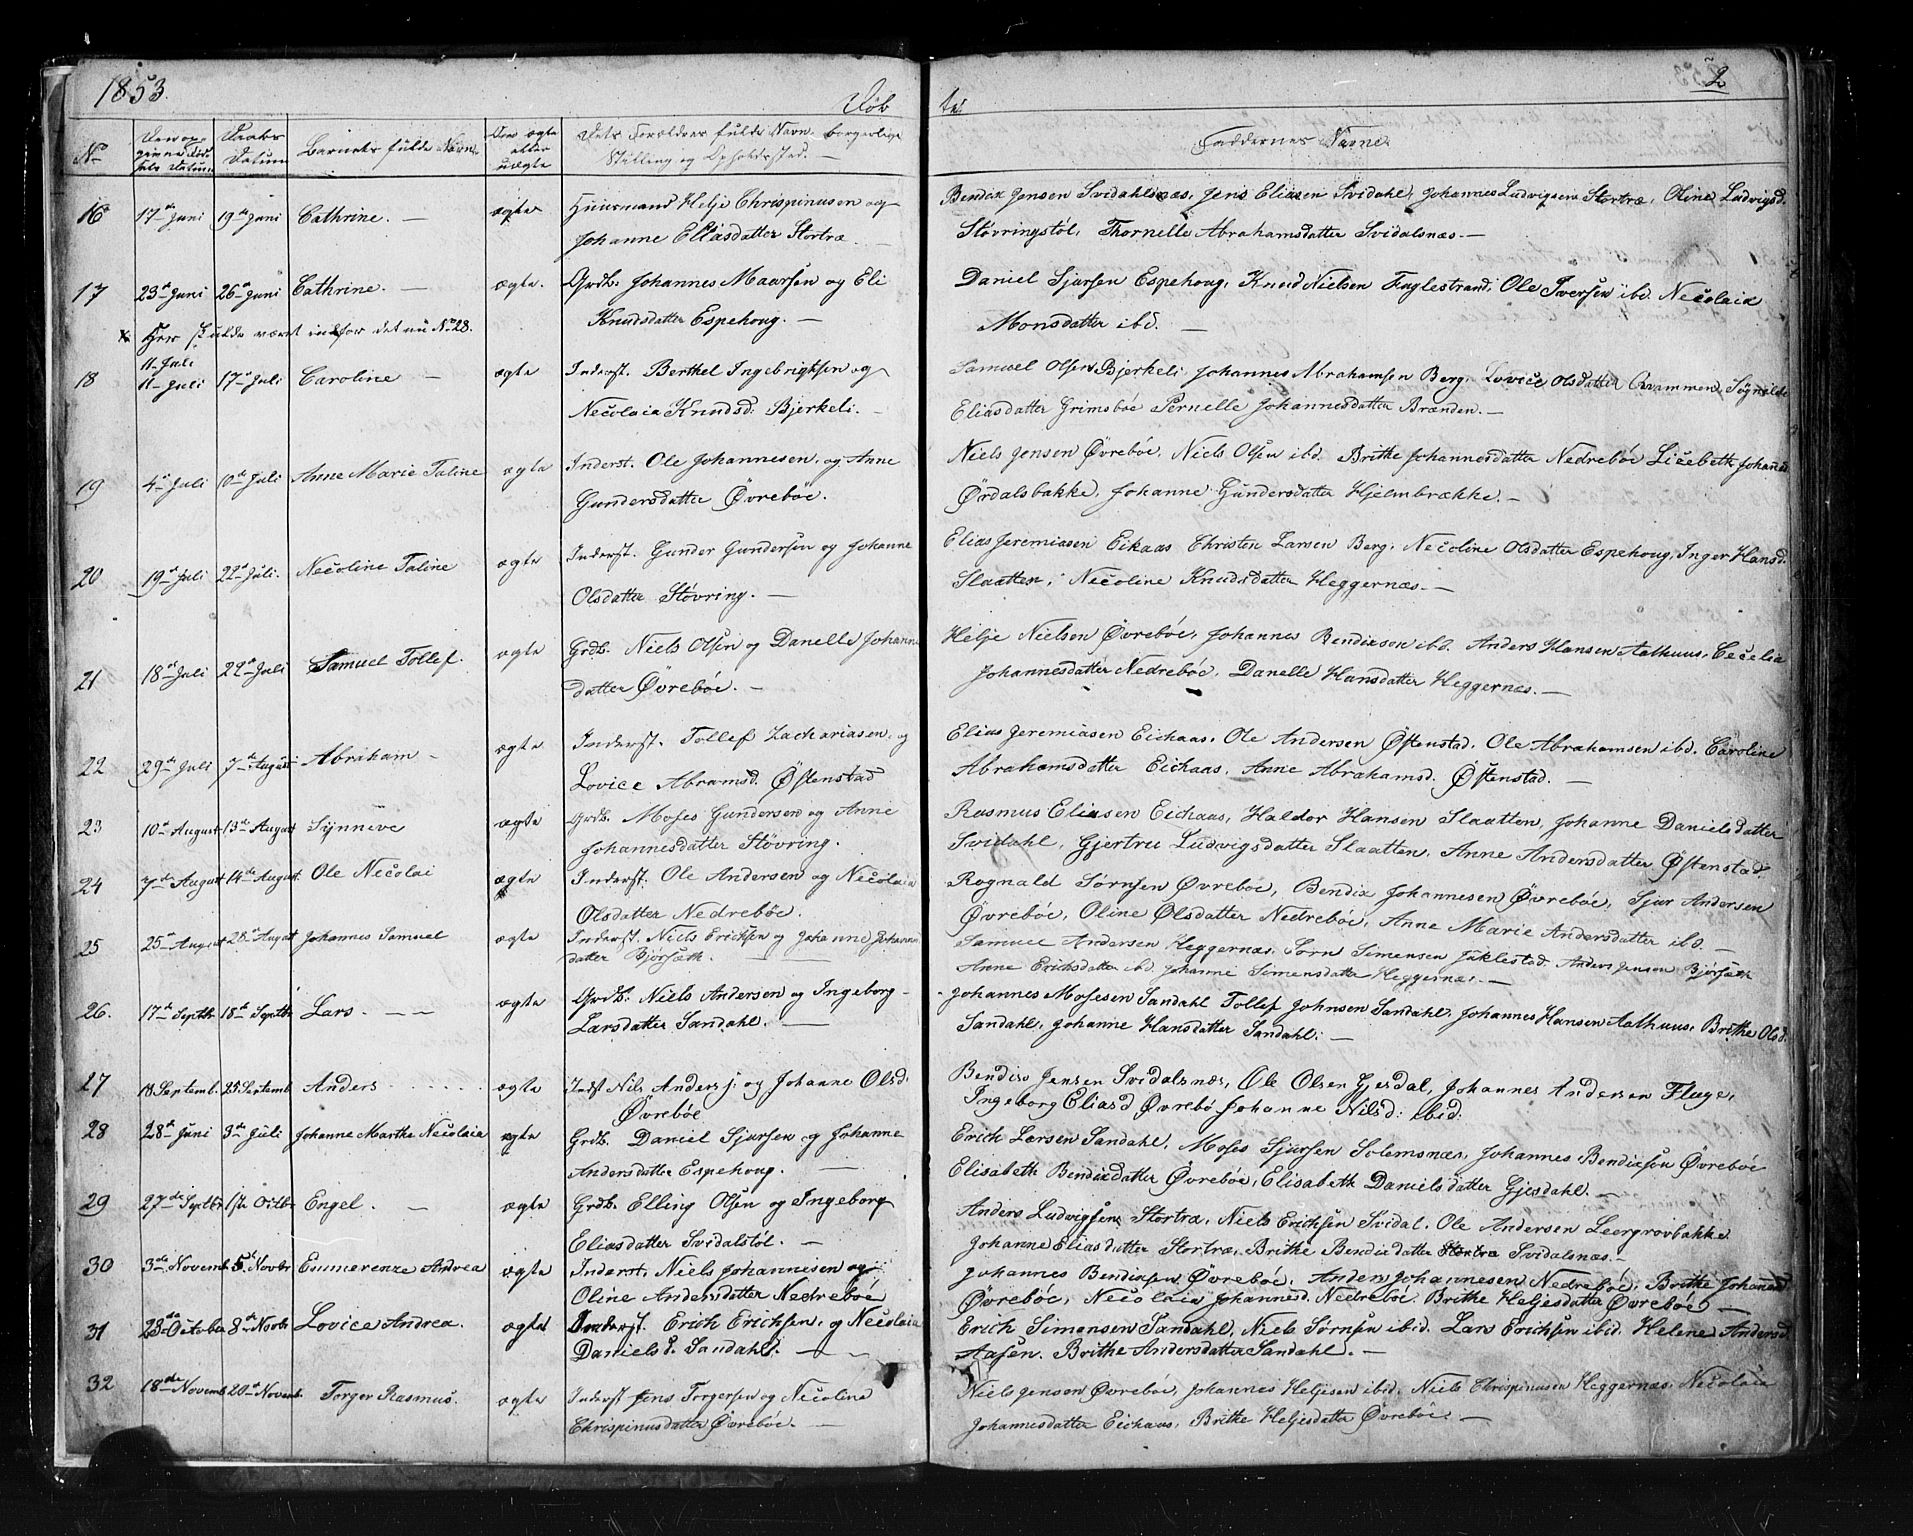 1853.
Døb
te.
2
No
Den op-
givne Fød-
sels Datum
Daabs
Datum
Barnets fulde Navn
Om ægte
eller
uægte
Dets Forældres fulde Navn borgerlige
Stilling og Opholdssted. —
Faddernes Navne
16 17de Juni 19de Juni Cathrine. — ægte Huusmand Helje Chrispinusen og
Johanne Eliasdatter Stortræ. —
Bendix Jensen Svidahlsnæs, Jens Eliasen Svidahl, Johannes Ludvigsen Stortræ, Oline Ludvigsd.
Støvringstøl, Thornelle Abrahamsdatter Svidalsnæs. —
17 23de Juni 26de Juni Cathrine. — ægte. Grdb. Johannes Maarsen og Eli
Knudsdatter Espehoug. —
Daniel Sjursen Espehoug, Knud Nielsen Fuglestrand, Ole Iversen ibd. Necolaia
Monsdatter ibd. —
x Her skulde været indfør det nu No 28.
11 Juli
18 11 Juli 17 Juli Caroline — ægte Inderst. Berthel Ingebrigtsen og
Necolaia Knudsd: Bjerkeli. —
Samuel Olsen Bjerkeli, Johannes Abrahamsen Berg, Lovice Olsdatter Qvammen, Søgnilde
Eliasdatter Grimsbøe Pernelle Johannesdatter Brænden. —
19 4de Juli 10de Juli Anne Marie Taline ægte Inderst. Ole Johannesen, og Anne
Gundersdatter Øvrebøe.
Niels Jensen Øvrebøe, Niels Olsen ibd. Brithe Johannesdatter Nedrebøe Licebeth Johanes
Ørdalsbakke, Johanne Gundersdatter Hjelmbrække. —
20 19de Juli 22de Juli. Necoline Taline ægte Inderst. Gunder Gundersen og Johanne
Olsdatter Støvring. —
Elias Jeremiasen Eikaas Christen Larsen Berg, Necoline Olsdatter Espehoug, Inger Hansd.
Slaatten, Necoline Knudsdatter Heggernæs. —
21 18de Juli 22de Juli Samuel Tollef. ægte Grdb. Niels Olsen og Danelle Johannes
datter Øvrebøe. —
Helje Nielsen Øvrebøe, Johannes Bendixsen ibd. Anders Hansen Aathuus, Cecelia
Johannesdatter Nedrebøe, Danelle Hansdatter Heggernæs. —
22 29de Juli 7de August Abraham — ægte Inderst. Tollef Zachariasen, og
Lovice Abramsd. Østenstad
Elias Jeremiasen Eichaas, Ole Andersen Østenstad, Ole Abrahamsen ibd. Caroline
Abrahamsdatter Eichaas, Anne Abrahamsd. Østenstad. —
23 10de August 13de August Synneve ægte Grdb. Moses Gundersen og Anne
Johannesdatter Støvring.
Rasmus Eliasen Eichaas, Haldor Hansen Slaatten, Johanne Danielsdatter
Svidahl, Gjertru Ludvigsdatter Slaatten, Anne Andersdatter Østenstad
24 7de August 14de August Ole Necolai ægte Inderst. Ole Andersen og Necolaia
Olsdatter Nedrebøe.
Rognald Sørnsen Øvreboe, Bendix Johannesen Øvrebøe, Sjur Andersen
Øvrebøe, Oline Olsdatter Nedrebøe, Anne Marie Andersdatter ibd. —
25 25de August 28de August Johannes Samuel ægte Inderst. Niels Erichsen og Johanne Johannes
datter Bjørsæth. —
Samuel Andersen Heggernæs, Sørn Simensen Jøklestad, Anders Jensen Bjørsæth
Anne Erichsdatter ibd. Johanne Simensdatter Heggernæs. —
26. 17de Septbr 18de Septbr Lars. — ægte Grdb. Niels Andersen og Ingeborg
Larsdatter Sandahl. —
Johannes Mosesen Sandahl Tollef Johnsen Sandahl, Johannes Hansen Aathuus, Brithe Olsd.
Sandahl, Johanne Hansdatter Sandahl. —
27 18 Septemb. 25 Septemb. Anders ægte Indst Nils Anders: og Johanne Olsd:
Øvrebøe
Bendix Jensen Svidalsnæs, Ole Olsen Gjesdal, Johannes Andersen Fluge,
Ingeborg Eliasd Øvrebø Johanne Nilsd: ibid.
28 28de Juni 3de Juli Johanne Marthe Necolaia ægte Grdb. Daniel Sjursen og Johanne
Andersdatter Espehoug. —
Erich Larsen Sandahl, Moses Sjursen Solemsnæs, Johannes Bendixsen Øvrebøe
Elisabeth Bendixdatter Øvrebøe, Elisabeth Danielsdatter Gjesdahl. —
29 27de Septbr 1ste Octbr Engel. — ægte Grdb. Elling Olsen og Ingeborg
Eliasdatter Svidalstøl. —
Anders Ludvigsen Stortræ, Niels Erichsen Svidal, Ole Andersen Leergrovbakke
Johanne Eliasdatter Stortræ, Brithe Bendixdatter Stortræ Svidalsnæs. —
30 3de Novemb 5. Novbr Emmerenze Andrea ægte Inderst. Niels Johannesen og
Oline Andersdatter Nedrebøe
Johannes Bendixsen Øvrebøe, Anders Johannesen Nedrebøe, Brithe Johanesd
Øvrebøe, Necolaia Johannesd. Nedrebøe Brithe Heljesdatter Øvrebøe —
31 28de October 8de Novbr Lovice Andrea. ægte Inderst. Erich Erichsen, og Necolaia
Danielsd. Sandahl. —
Erich Simensen Sandahl, Niels Sørnsen ibid. Lars Erichsen ibid. Helene Andersd
Aasen. Brithe Andersdatter Sandahl. —
32 18de Novemb 20de Novemb. Torger Rasmus. ægte Inderst Jens Torgersen og Necoline
Chrispinusdatter Øvrebøe. —
Niels Jensen Øvrebøe, Johannes Heljesen ibid. Niels Chrispinusen Heggernæs, Necolaia
Johannesdatter Eichaas, Brithe Heljesdatter Øvrebøe. —